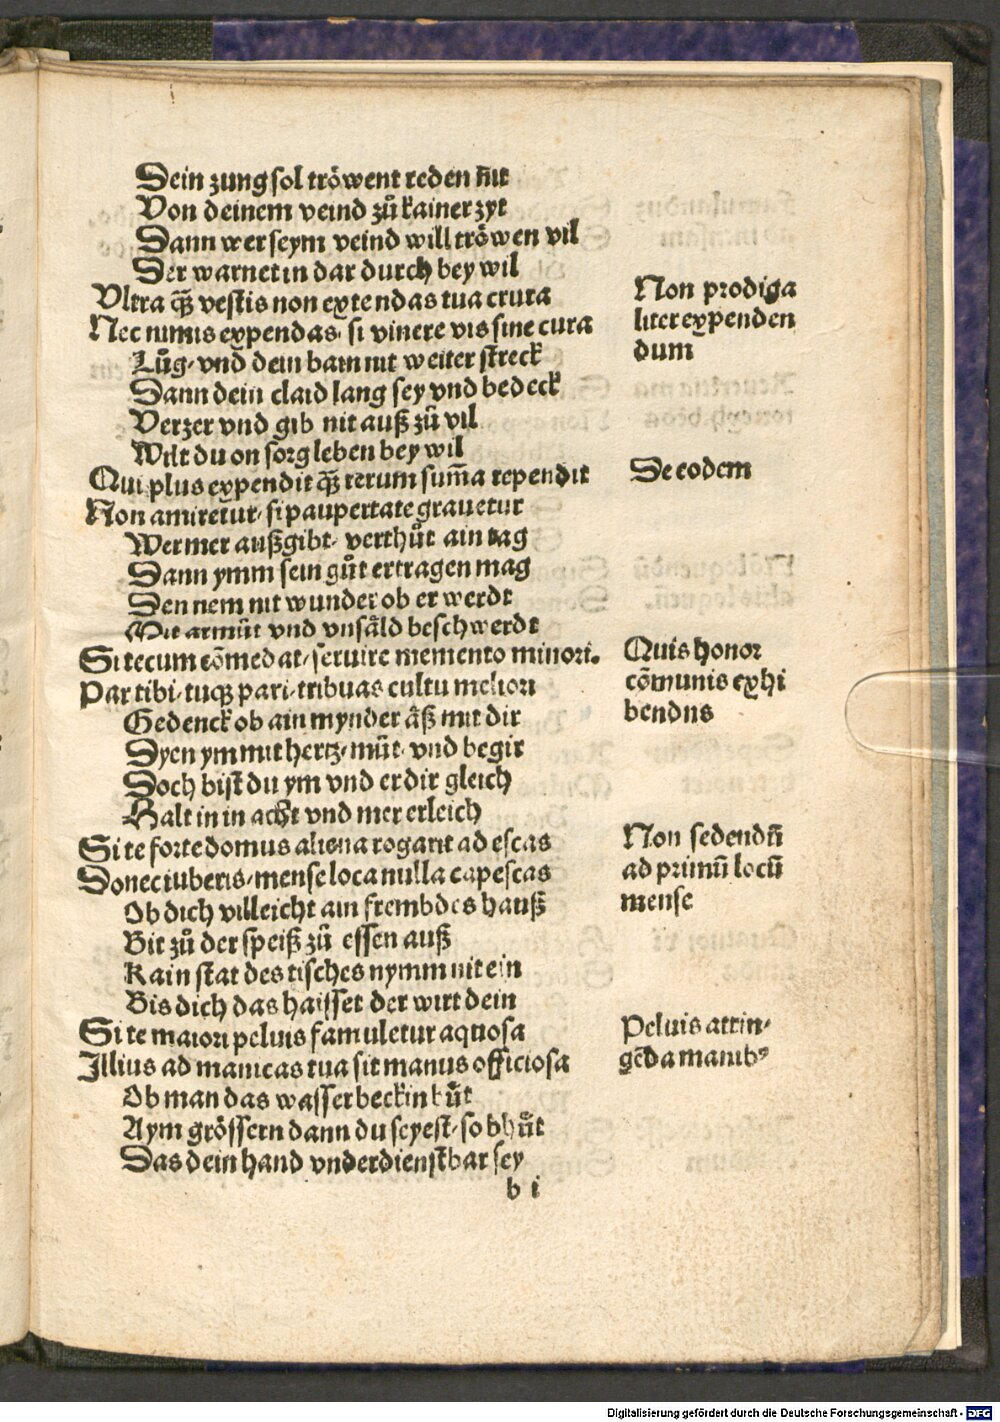 Dein zung sol tröwent reden nit
Von deinem veind zů kainer zyt
Dann wer seym veind will tröwen vil
Der warnet in dar durch bey wil
Vltra qȝ vestis non extendas tua crura
Nec nimis expendas, si viuere vis sine cura
Lůg, vnd dein bain nit weiter streck
Dann dein claid lang sey vnd bedeck
Verzer vnd gib nit auß zů vil
Wilt du on sorg leben bey wil
Qui plus expendit qȝ rerum sum̄a rependit
Non amiretur, si paupertate grauetur
Wer mer außgibt, verthůt ain tag
Dann ymm sein gůt ertragen mag
Den nem nit wunder ob er werdt
Mit armůt vnd vnsåld beschwerdt
Si tecum cōmedat, seruire memento minori.
Par tibi, tuqȝ pari, tribuas cultu meliori
Gedenck ob ain mynder åß mit dir
Dyen ym mit hertz, můt, vnd begir
Doch bist du ym vnd er dir gleich
Halt in in acht vnd mer erleich
Si te forte domus aliena rogarit ad escas
Donec iuberis, mense loca nulla capescas
Ob dich villeicht ain frembdes hauß
Bit zů der speiß zů essen auß
Kain stat des tisches nymm nit ein
Bis dich das haisset der wirt dein
Si te maiori peluis famuletur aquosa
Illius ad manicas tua sit manus officiosa
Ob man das wasserbeckin bůt
Aym grössern dann du seyest, so bhůt
Das dein hand vnderdienstbar sey
b i
Non prodiga
liter expenden
dum
De eodem
Quis honor
cōmunis exhi
bendus
Non sedendū
ad primū locū
mense
Peluis attin,
gēda manibꝰ
Digitalisierung gefördert durch die Deutsche Forschungsgemeinschaft - DFG